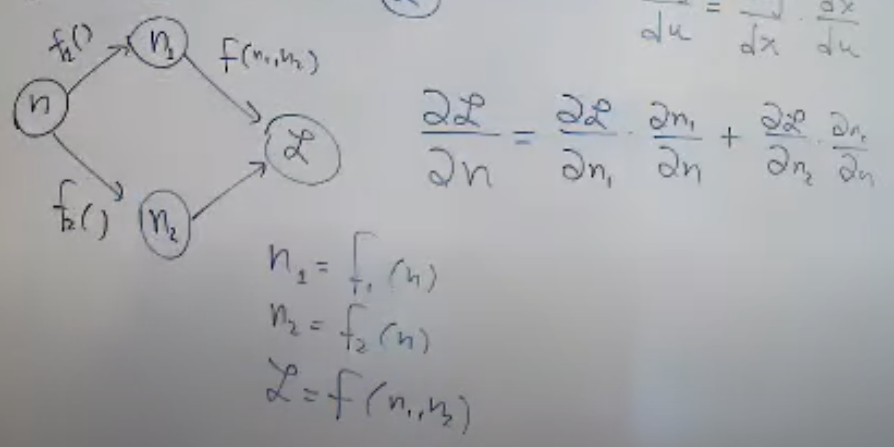 du = dx · dx/du
f₂()
n₁
f(n₁,n₂)
n
ℒ
∂ℒ/∂n = ∂ℒ/∂n₁ · ∂n₁/∂n + ∂ℒ/∂n₂ · ∂n₂/∂n
f₂()
n₂
n₁ = f₁(n)
n₂ = f₂(n)
ℒ = f(n₁,n₂)